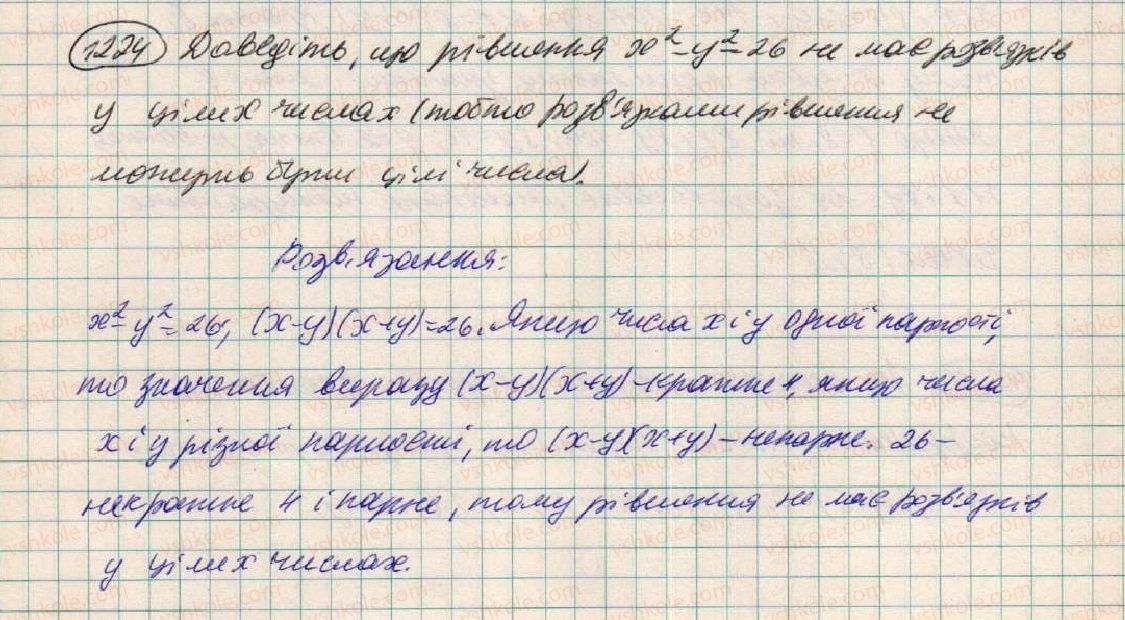 1224 Доведіть, що рівняння x² - y² = 26 не має розв'язків
у цілих числах (тобто розв'язками рівняння не
можуть бути цілі числа).
Розв'язання:
x² - y² = 26; (x-y)(x+y)=26. Якщо числа x і y одної парності,
то значення виразу (x-y)(x+y) - кратне 4, якщо числа
x і y різної парності, то (x-y)(x+y) - непарне. 26 -
некратне 4 і парне, тому рівняння не має розв'язків
у цілих числах.